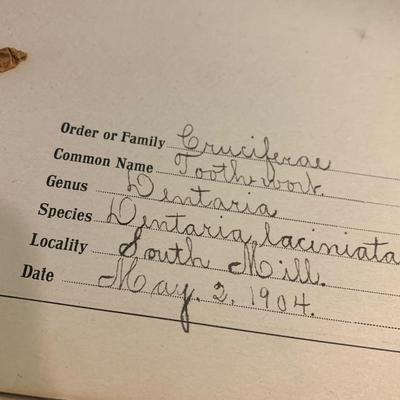 Order or Family Cruciferae
Common Name Toothwort.
Genus Dentaria
Species Dentaria laciniata
Locality South Mill.
Date May. 2, 1904.